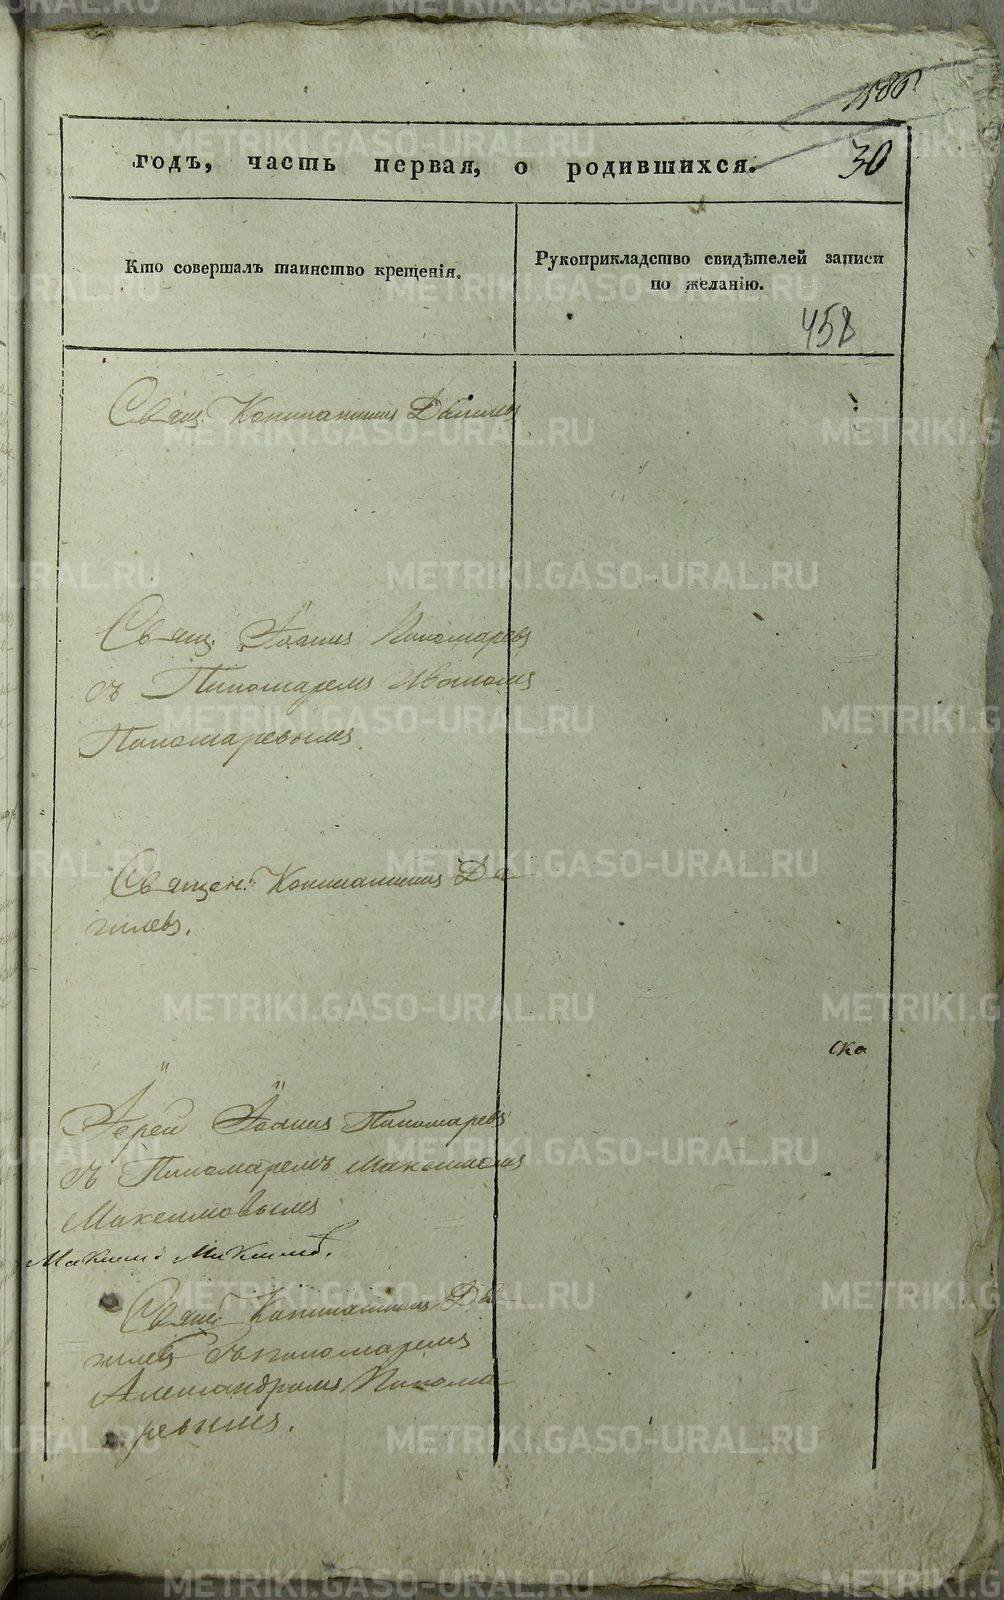 годъ, часть первая, о родившихся.
30
Кто совершалъ таинство крещенія.
Рукоприкладство свидѣтелей записи
по желанію.
458
Свящ. Константинъ
Свящ. Іоаннъ Пономаревъ
съ Пономаремъ Иваномъ
Пономаревымъ
Священ. Константинъ
ска
Іерей Іоаннъ Пономаревъ
съ Пономаремъ Максимомъ
Максимовымъ
Свящ. Константинъ
съ пономаремъ
Александромъ Понома
ревымъ.
METRIKI.GASO-URAL.RU